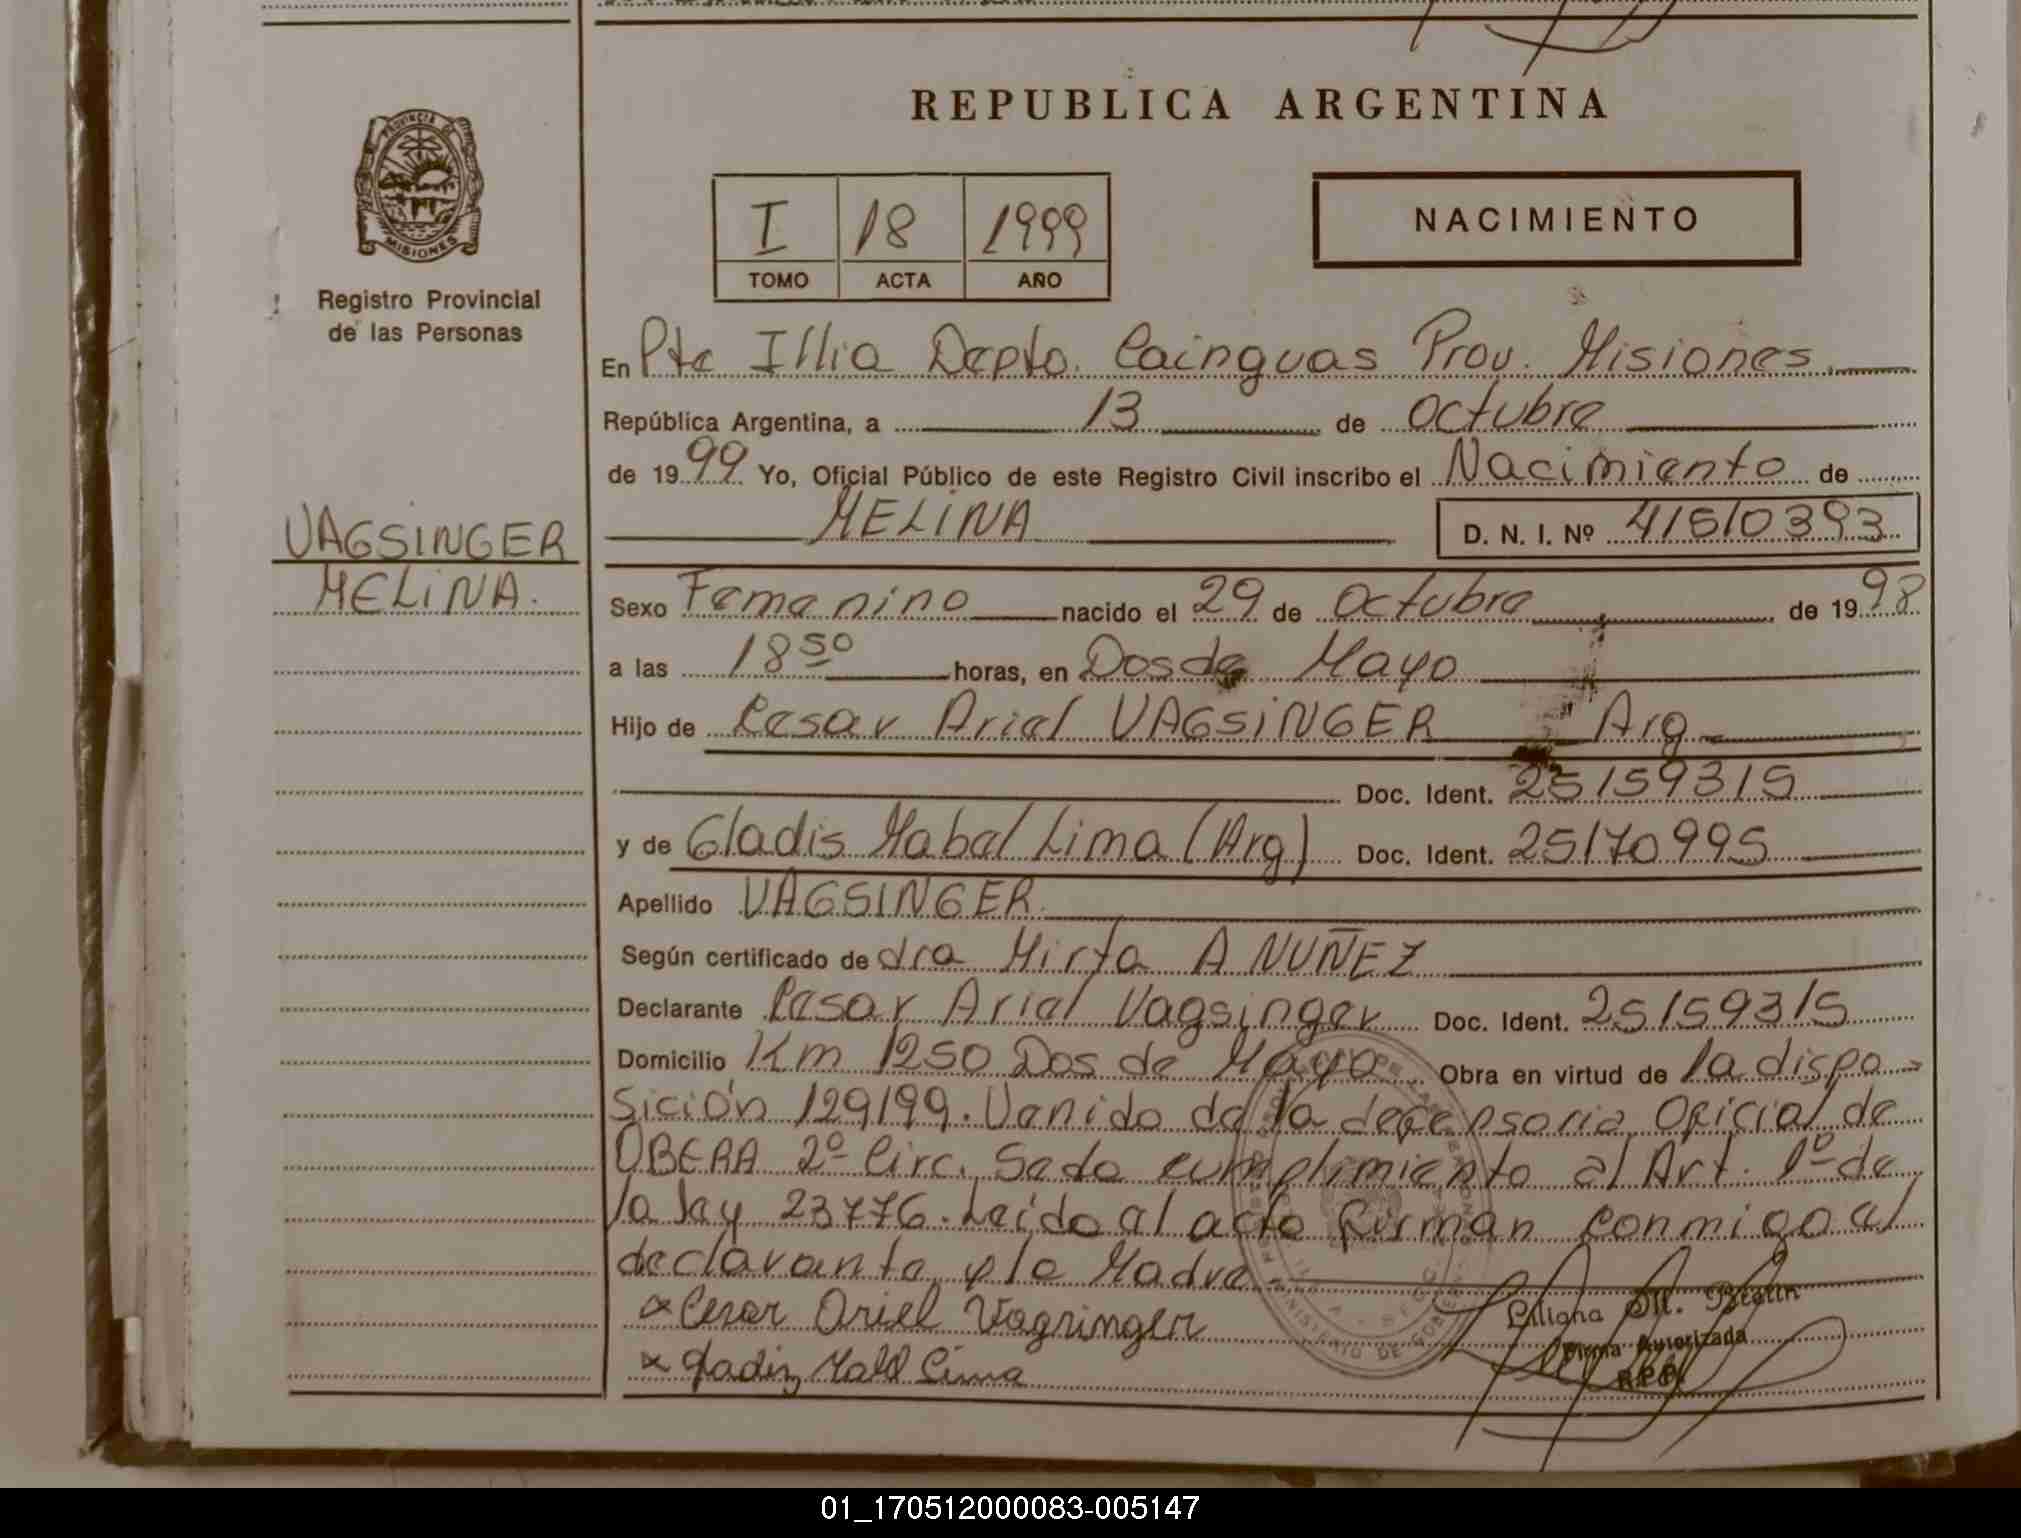 REPUBLICA ARGENTINA
PROVINCIA DE
MISIONES
Registro Provincial
de las Personas
I 18 1999
TOMO ACTA AÑO
NACIMIENTO
En Pte Illia Depto. Cainguas Prov. Misiones.
República Argentina, a 13 de octubre
de 1999 Yo, Oficial Público de este Registro Civil inscribo el Nacimiento de
VAGSINGER
MELINA.
MELINA D. N. I. Nº 41510393
Sexo Femenino nacido el 29 de Octubre de 1998
a las 18 50 horas, en Dos de Mayo
Hijo de Cesar Ariel VAGSINGER Arg
Doc. Ident. 25159315
y de Gladis Mabel Lima (Arg) Doc. Ident. 25170995
Apellido VAGSINGER
Según certificado de dra Mirta A NUÑEZ
Declarante Cesar Ariel Vagsinger Doc. Ident. 25159315
Domicilio Km 1250 Dos de Mayo Obra en virtud de la dispo-
sición 129199. Venido de la defensoria Oficial de
OBERA 2º Circ. Se do cumplimiento al Art. 1º de
la ley 23776. Leido el acta firman conmigo el
declarante y la Madre.
x Cesar Ariel Vagsinger
x Gladis Mabel Lima
Liliana M.
Firma Autorizada
R.P.P.
MINISTERIO DE GOBIERNO
01_170512000083-005147